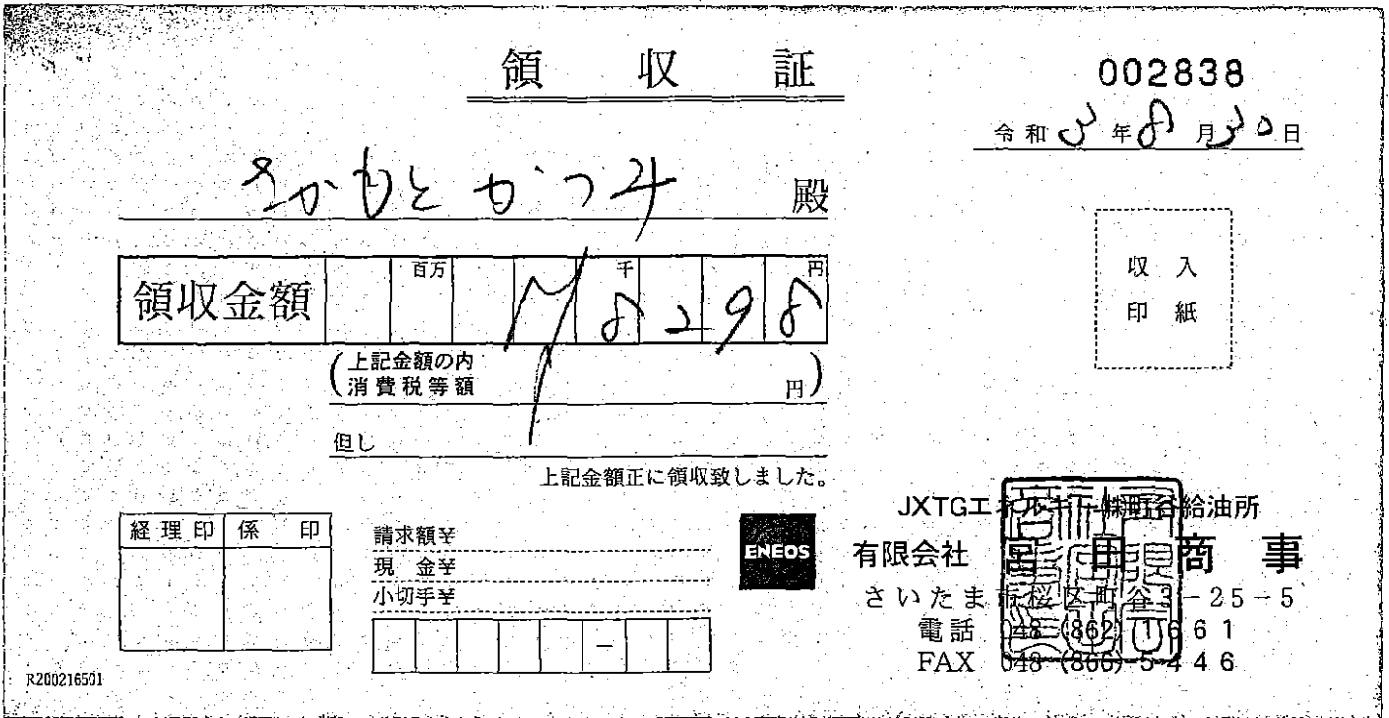 領収証
002838
令和3年8月30日
さかもとかつみ 殿
領収金額 百万 千 円
¥8298
(上記金額の内
消費税等額 円)
但し
上記金額正に領収致しました。
経理印 係印
請求額¥
現金¥
小切手¥
-
ENEOS
収入
印紙
JXTGエネルギー㈱町谷給油所
有限会社 宮田商事
さいたま市桜区町谷3-25-5
電話 048 (862) 1661
FAX 048 (866) 5446
R200216501